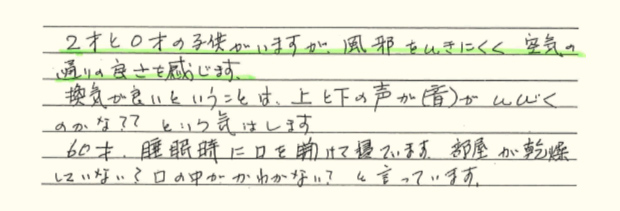 2才と0才の子供がいますが、風邪をひきにくく 空気の
通りの良さを感じます。
換気が良いということは、上と下の声が(音)が ひびく
のかな?? という気はします
60才、睡眠時に口を開けて寝ています。部屋が乾燥
していない?口の中がかわかない? と言っています。